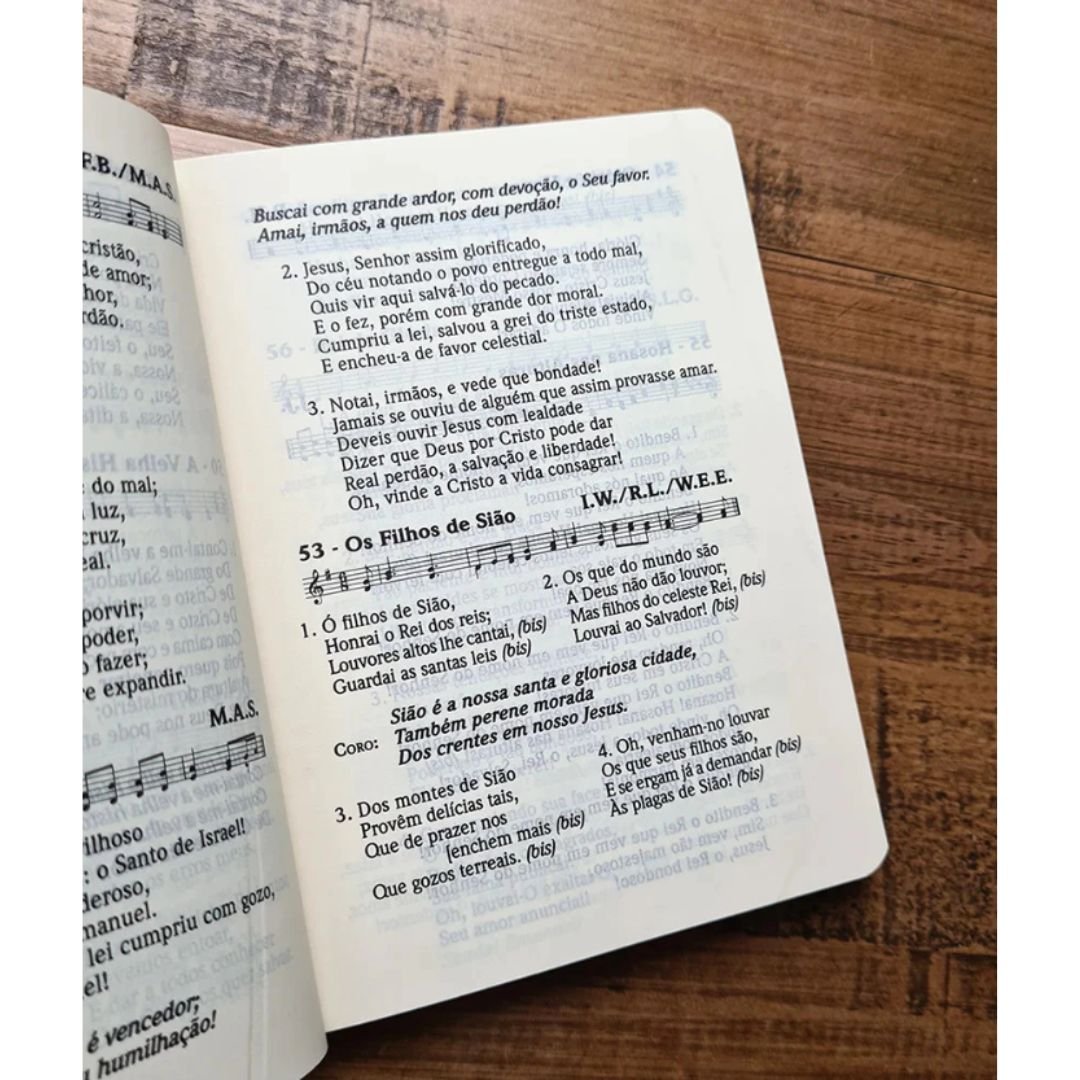 F.B./M.A.S.
cristão,
de amor;
hor,
rdão.
do mal;
luz,
cruz,
eal.
porvir;
poder,
o fazer;
re expandir.
M.A.S.
ilhoso
: o Santo de Israel!
deroso,
manuel.
lei cumpriu com gozo,
el!
é vencedor;
u humilhação!
Buscai com grande ardor, com devoção, o Seu favor.
Amai, irmãos, a quem nos deu perdão!
2. Jesus, Senhor assim glorificado,
Do céu notando o povo entregue a todo mal,
Quis vir aqui salvá-lo do pecado.
E o fez, porém com grande dor moral.
Cumpriu a lei, salvou a grei do triste estado,
E encheu-a de favor celestial.
3. Notai, irmãos, e vede que bondade!
Jamais se ouviu de alguém que assim provasse amar.
Deveis ouvir Jesus com lealdade
Dizer que Deus por Cristo pode dar
Real perdão, a salvação e liberdade!
Oh, vinde a Cristo a vida consagrar!
53 - Os Filhos de Sião I.W./R.L./W.E.E.
1. Ó filhos de Sião,
Honrai o Rei dos reis;
Louvores altos lhe cantai, (bis)
Guardai as santas leis (bis)
2. Os que do mundo são
A Deus não dão louvor;
Mas filhos do celeste Rei, (bis)
Louvai ao Salvador! (bis)
Sião é a nossa santa e gloriosa cidade,
CORO: Também perene morada
Dos crentes em nosso Jesus.
3. Dos montes de Sião
Provêm delícias tais,
Que de prazer nos
[enchem mais (bis)
Que gozos terreais. (bis)
4. Oh, venham-no louvar
Os que seus filhos são,
E se ergam já a demandar (bis)
Às plagas de Sião! (bis)